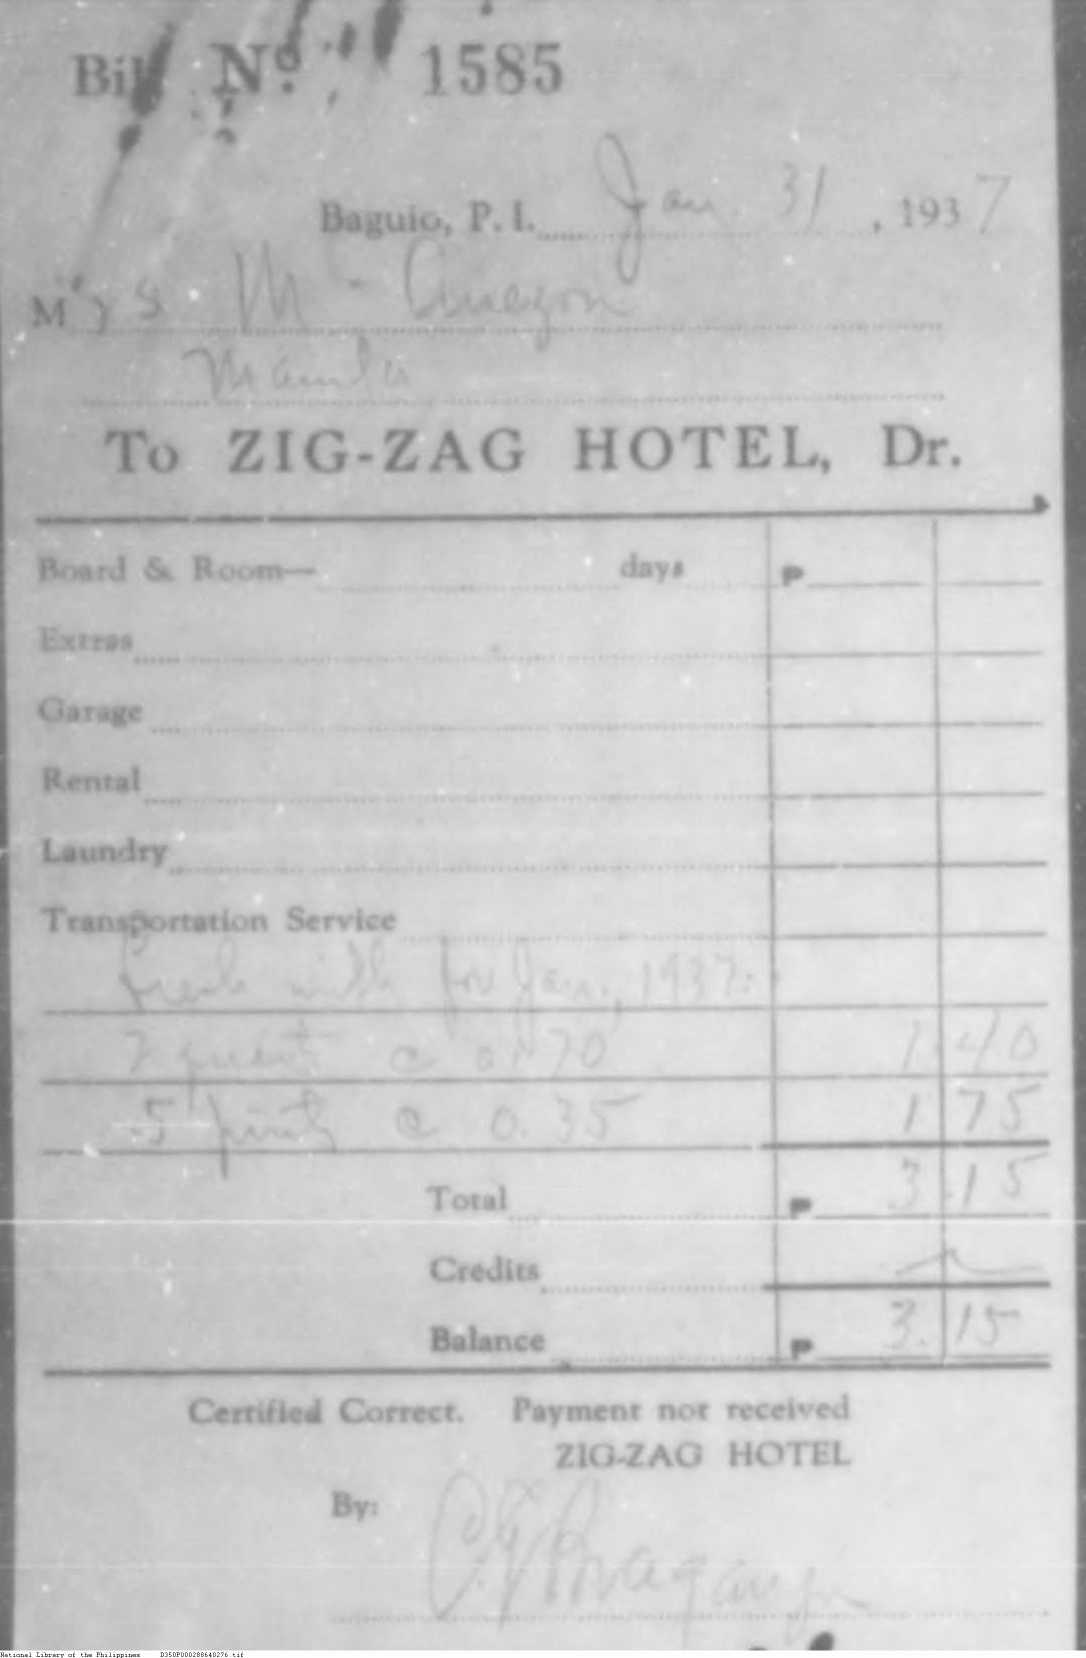 Bill Nº 1585
Baguio, P. I. Jan. 31, 1937
Mrs. M. Quezon
Manila
To ZIG-ZAG HOTEL, Dr.
Board & Room— days ₱
Extras
Garage
Rental
Laundry
Transportation Service
fresh milk for Jan., 1937:
2 quart @ 0.70 1 40
5 pints @ 0.35 1 75
Total ₱ 3.15
Credits
Balance ₱ 3.15
Certified Correct. Payment not received
ZIG-ZAG HOTEL
By:
National Library of the Philippines D350P000288640276.tif